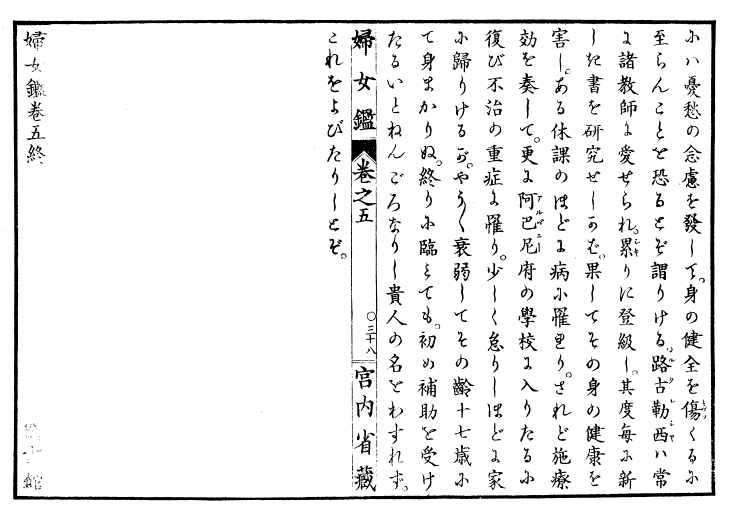 にハ憂愁の念慮を發して。身の健全を傷くるに
至らんことを恐るとぞ謂りける。路古勒西ハ常
に諸教師に愛せられ。累りに登級し。其度每に新
しき書を研究せしかば。果してその身の健康を
害し。ある休課のほどに病に罹り。されど施療
効を奏して。更に阿巴尼府の學校に入りたるに
復び不治の重症に罹り。少しく怠りしほどに家
に歸りけるが。やうく衰弱してその齡十七歲に
て身まかりぬ。終りに臨みても。初め補助を受け
たるいとねんごろなりし貴人の名をわすれず。
婦女鑑 卷之五 〇三十八 宮內省藏
これをよびたりしとぞ。
婦女鑑卷五終